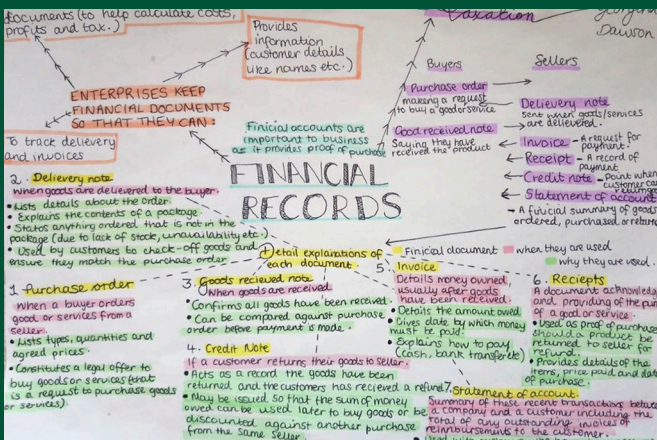 documents (to help calculate costs,
profits and tax.)
Provides
information
(customer details
like names etc.)
ENTERPRISES KEEP
FINANCIAL DOCUMENTS
SO THAT THEY CAN:
To track delievery
and invoices
Finicial accounts are
important to business
as it provides proof of purchase
FINANCIAL
RECORDS
taxation
Dawson
Buyers
Sellers
Purchase order
making a request
to buy a good or service
Delievery note
sent when goods/services
are delievered.
Good received note
Saying they have
received the product
Invoice - A request for
payment.
Receipt - A record of
payment
Credit note - Point when
customer can
Statement of account
- A finicial summary of goods
ordered, purchased or
Detail explanations of
each document
Finicial document
when they are used
why they are used.
2. Delievery note
When goods are delievered to the buyer.
• Lists details about the order.
• Explains the contents of a package
• States anything ordered that is not in the
package (due to lack of stock, unavailability etc.)
• Used by customers to check-off goods and
ensure they match the purchase order
1. Purchase order
when a buyer orders
good or services from a
seller.
• Lists types, quantities and
agreed prices.
• Constitutes a legal offer to
buy goods or services (that
is a request to purchase goods
or services).
3. Goods recieved note
When goods are received
• Confirms all goods have been received.
• Can be compared against purchase
order before payment is made.
4. Credit Note
If a customer returns their goods to seller.
• Acts as a record the goods have been
returned and the customers has recieved a refund
• May be issued so that the sum of money
owed can be used later to buy goods or be
discounted against another purchase
from the same seller.
5.
Invoice
Details money owned,
usually after goods
have been received.
• Details the amount owed
• Gives date by which money
must be paid.
• Explains how to pay
(cash, bank transfer etc)
6. Reciepts
A document acknowledg
and providing of the pur
of a good or service.
• Used as proof of purchase
should a product be
returned to seller for
refund.
• Provides details of the
items, price paid and date
of purchase.
7. Statement of account.
Summary of these recent transactions between
a company and a customer including the
total of any outstanding invoices or
reimbursements to the customer.